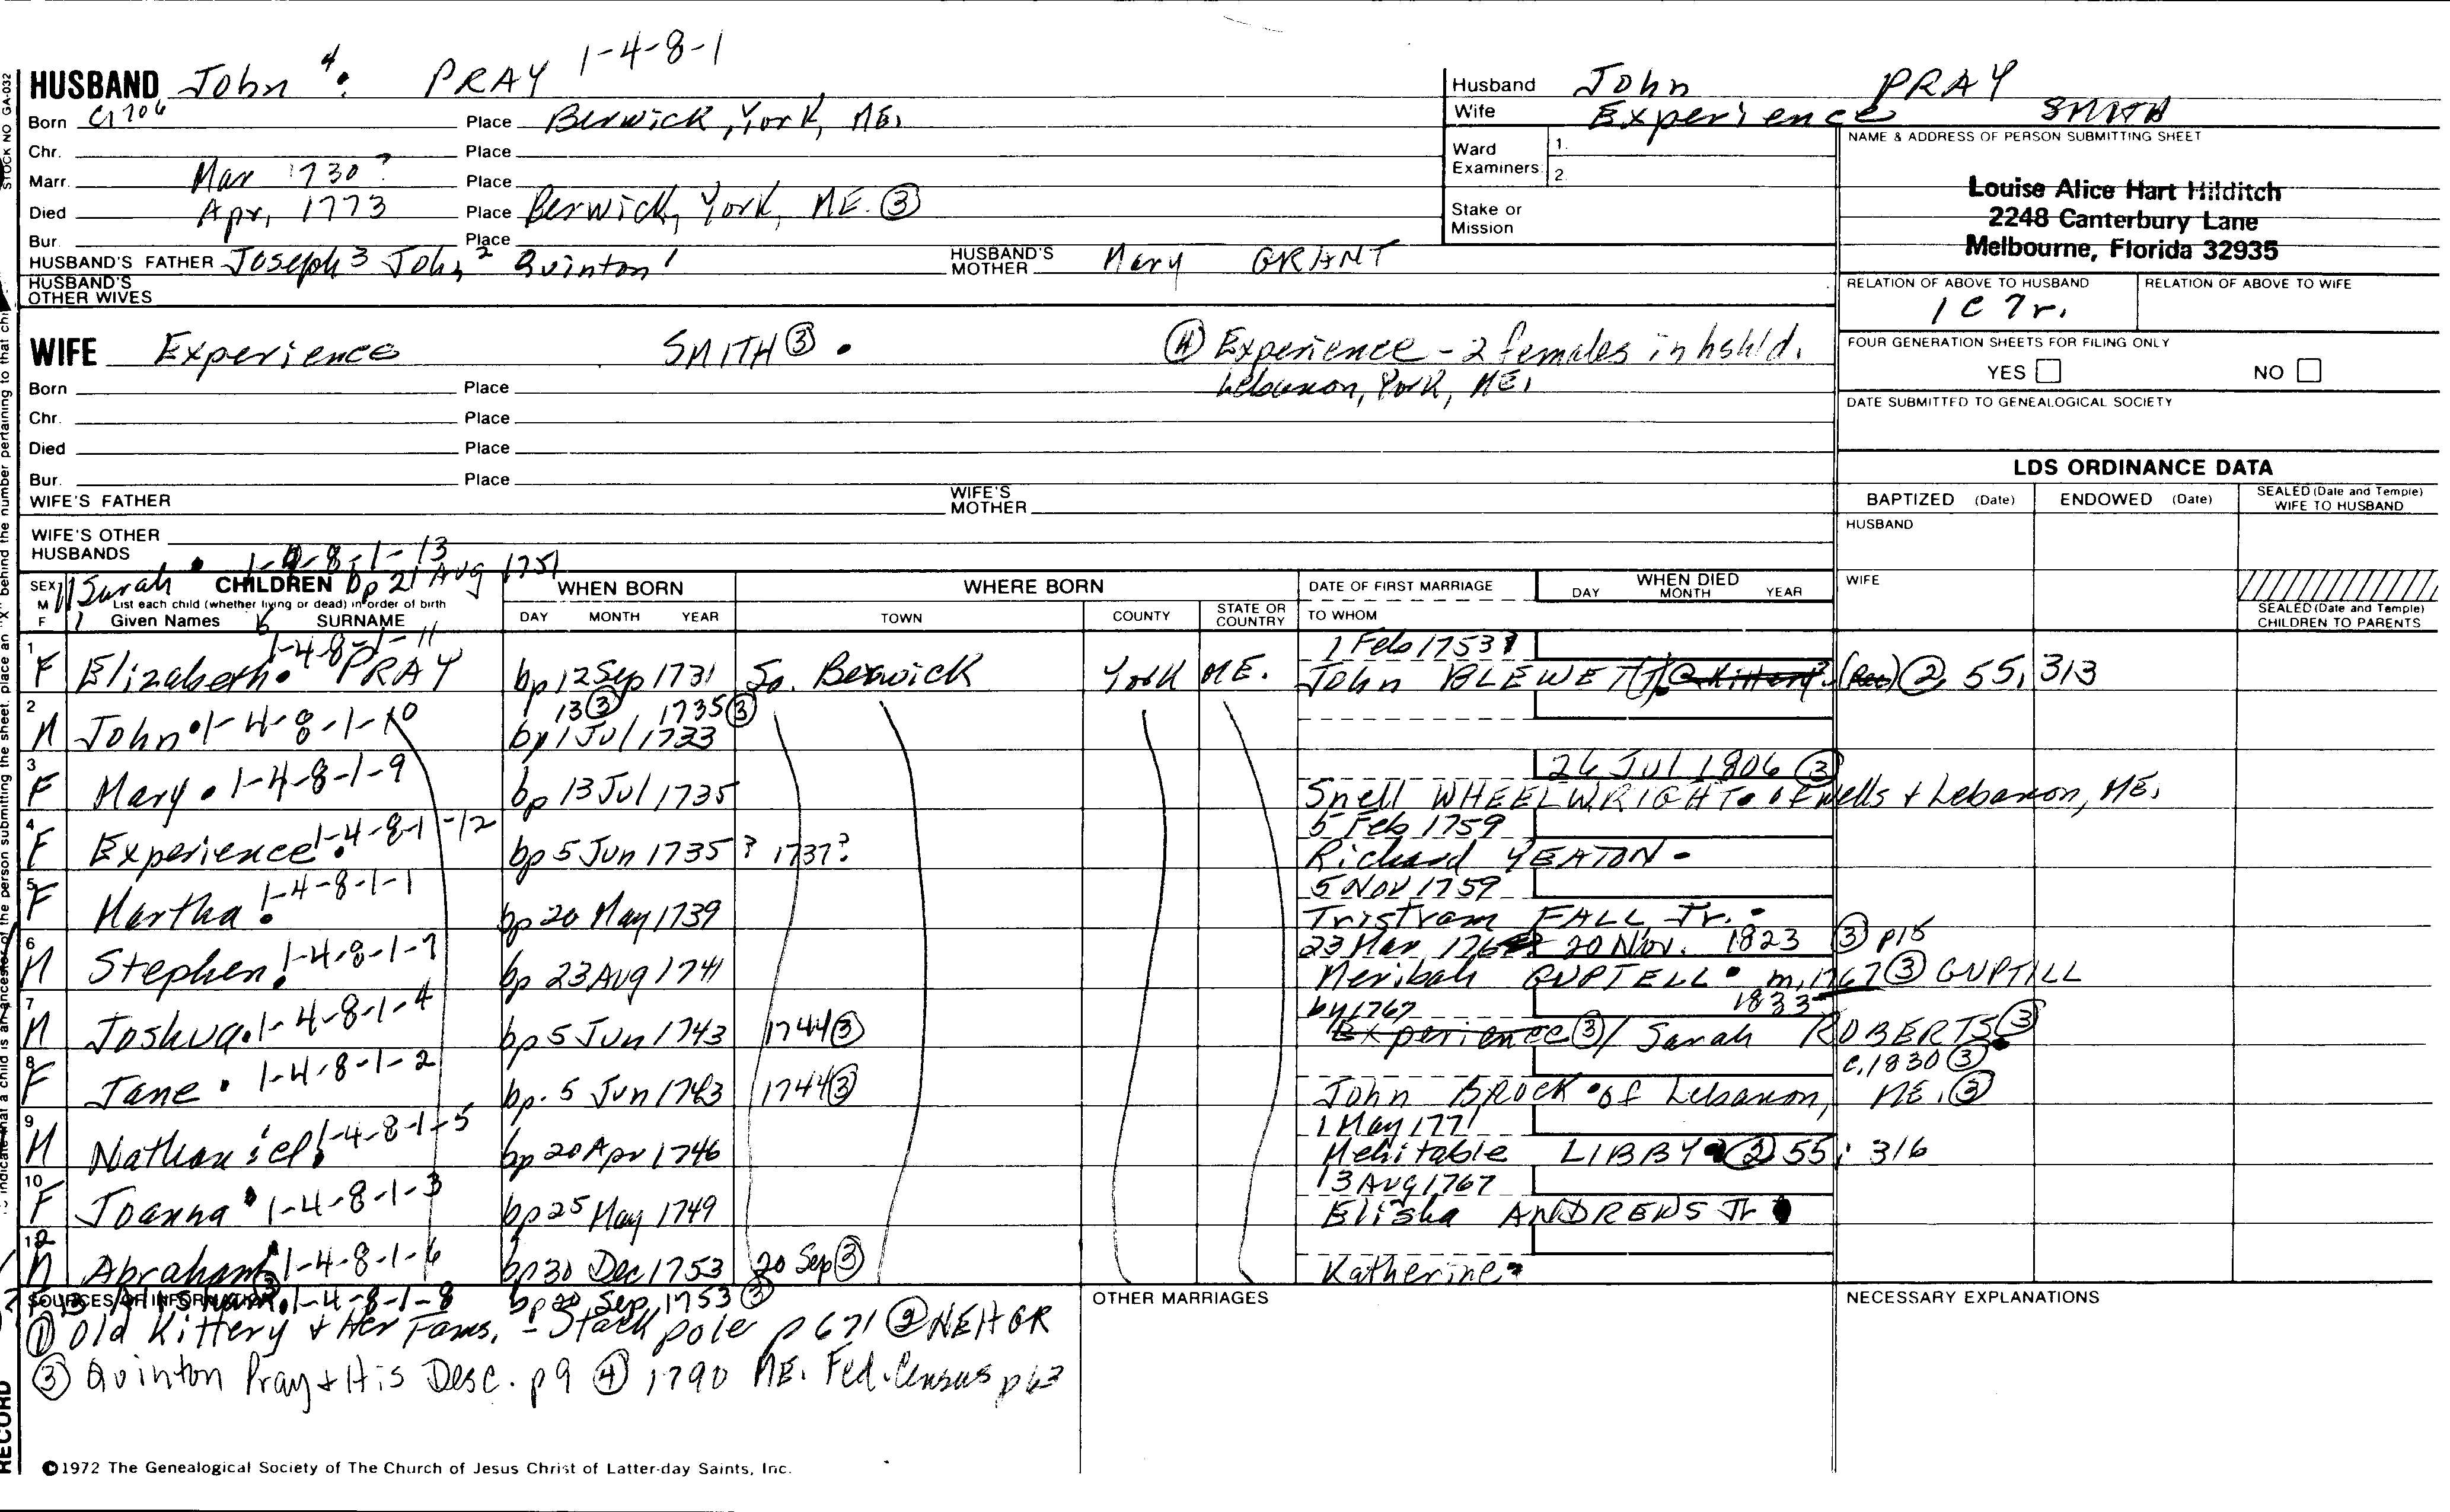 1-4-8-1
HUSBAND John 4. PRAY
Born C1706 Place Berwick, York, ME.
Chr. Place
Marr. Mar 1730? Place
Died Apr, 1773 Place Berwick, York, ME. ③
Bur. Place
HUSBAND'S FATHER Joseph 3 John 2 Quinton 1 HUSBAND'S MOTHER Mary GRANT
HUSBAND'S OTHER WIVES
Husband John PRAY
Wife Experience SMITH
Ward Examiners: 1. 2.
Stake or Mission
NAME & ADDRESS OF PERSON SUBMITTING SHEET
Louise Alice Hart Hilditch
2248 Canterbury Lane
Melbourne, Florida 32935
RELATION OF ABOVE TO HUSBAND RELATION OF ABOVE TO WIFE
1C7r.
FOUR GENERATION SHEETS FOR FILING ONLY
YES NO
DATE SUBMITTED TO GENEALOGICAL SOCIETY
WIFE Experience SMITH ③ . ④ Experience - 2 females in hshld.
Lebanon, York, ME.
Born Place
Chr. Place
Died Place
Bur. Place
WIFE'S FATHER WIFE'S MOTHER
WIFE'S OTHER HUSBANDS
LDS ORDINANCE DATA
BAPTIZED (Date) ENDOWED (Date) SEALED (Date and Temple) WIFE TO HUSBAND
HUSBAND
WIFE
SEALED (Date and Temple) CHILDREN TO PARENTS
1-4-8-1-13
11 Sarah bp 21 Aug 1751
SEX M F CHILDREN WHEN BORN WHERE BORN DATE OF FIRST MARRIAGE WHEN DIED
List each child (whether living or dead) in order of birth
Given Names SURNAME DAY MONTH YEAR TOWN COUNTY STATE OR COUNTRY TO WHOM DAY MONTH YEAR
1-4-8-1-11 1 Feb 1753?
1 F Elizabeth. PRAY bp 12 Sep 1731 So. Berwick York ME. John BLEWETT. (Rec) ② 55, 313
13 ③ 1735 ③
2 M John. 1-4-8-1-10 bp 1 Jul 1733
26 Jul 1806 ③
3 F Mary. 1-4-8-1-9 bp 13 Jul 1735 Snell WHEELWRIGHT. of Wells + Lebanon, ME.
5 Feb 1759
4 F Experience. 1-4-8-1-12 bp 5 Jun 1735? 1737? Richard YEATON.
5 Nov 1759
5 F Martha. 1-4-8-1-1 bp 20 May 1739 Tristram FALL Jr.
23 Mar 20 Nov. 1823 ③ p15
6 M Stephen. 1-4-8-1-7 bp 23 Aug 1741 Meribah GUPTELL. m. 1767 ③ GUPTILL
by 1767 1833
7 M Joshua. 1-4-8-1-4 bp 5 Jun 1743 1744 ③ Experience ③ / Sarah ROBERTS. ③
c. 1830 ③
8 F Jane. 1-4-8-1-2 bp. 5 Jun 1743 1744 ③ John BROCK. of Lebanon, ME. ③
1 May 1771
9 M Nathaniel. 1-4-8-1-5 bp 20 Apr 1746 Mehitable LIBBY ② 55: 316
13 Aug 1767
10 F Joanna. 1-4-8-1-3 bp 25 May 1749 Elisha ANDREWS Jr
12 M Abraham. 1-4-8-1-6 bp 30 Dec 1753 20 Sep ③ Katherine.
1-4-8-1-8 bp 20 Sep, 1753 ③
SOURCES OF INFORMATION OTHER MARRIAGES NECESSARY EXPLANATIONS
① Old Kittery + Her Fams. - Stackpole p 671 ② NEHGR
③ Quinton Pray + His Desc. p9 ④ 1790 ME. Fed. Census p63
©1972 The Genealogical Society of The Church of Jesus Christ of Latter-day Saints, Inc.
STOCK NO GA-032
RECORD